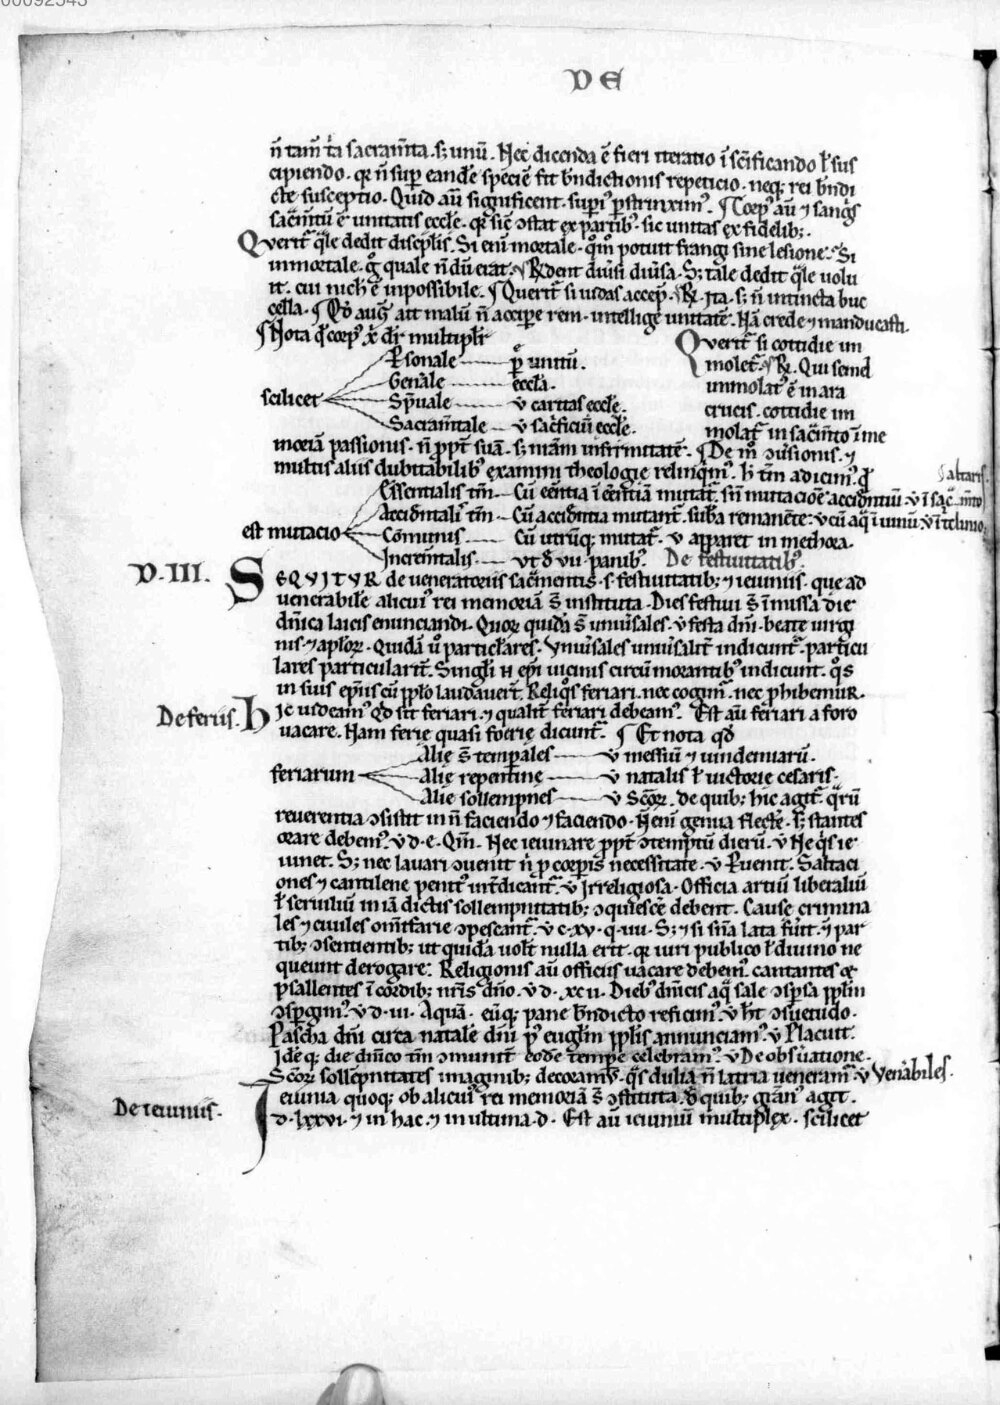 00092343
DE
n̄ tam̄ t̄a sacram̄ta .s; unū. Nec dicenda ē fieri iteratio ī sc̄ificando ł sus
cipiendo. qr n̄ sup eandē speciē fit bn̄dictionis repeticio. neq; rei bn̄di
cte susceptio. Quid aū significent. supi⁹ pstrinxim⁹. ¶ Corp⁹ aū ⁊ sang̾s
sacm̄tū ē unitatis eccłe. qr sic̄ ɔstat ex partib⁹. sic unitas ex fidelib;.
Querit᷑ qłe dedit discipłis. Si eni᷑ mortale. qōm potuit frangi sine lesione. Si
inmortale. g̊ quale n̄dū erat. R̄dent diūsi diūsa. S; tale dedit qłe uolu
it. cui nich̄ ē inpossibile. ¶ Querit᷑ si iudas accep̄. R̄. Ita. s; n̄ intincta buc
cella. ¶ Qđ aug⁹ ait malū n̄ accipe rem. intellige unitatē. Nā crede ⁊ manducasti.
¶ Nota q̄ corp⁹ x̄ dr̄ multiplr̄
scilicet
Psonale — p̲ unitū.
Gen̄ale — eccła.
Sp̄uale — v caritas eccłe.
Sacram̄tale — v sac̄ficiū eccłe.
Querit᷑ si cottidie im
molet᷑. R̄. Qui semel
immolat⁹ ē in ara
crucis. cottidie im
molat᷑ in sac̄mto ī me
moriā passionis. n̄ ppt̄ suā. s; n̄am infirmitatē. ¶ De m̊ ɔūsionis. ⁊
multis aliis dubitabilib⁹ examini theologie relinqm⁹. h̄ tm̄ adicim⁹. q̄
est mutacio
Essentialis tm̄ — Cū eēntia ī eēntiam mutat᷑. sin̄ mutacioē accidn̄tiū. v ī sac̄
altaris.
m̄to
Accidn̄tal᷑ tm̄ — Cū accidn̄tia mutant᷑. sub̄a remanēte: v cū aq̄ ī uinū. v ī
Com̄unis — Cū utrūq; mutat᷑. v apparet in methora.
Increm̄talis — ut đ vii. panib⁹.
De festiuitatib⁹.
D.III.
SEQVITVR de ueneratoriis sac̄mentis. s. festiuitatib; ⁊ ieiuniis. que ad
uenerabilē alicui⁹ rei memoriā s̄ instituta. Dies festiui s̄ ī missa die
dn̄ica laicis enunciandi. Quor̄ quidā s̄ uniūsales. v festa dn̄i. beate uirgi
nis. ⁊ apłor̄. Quidā ū particłares. Vniūsales uniūsalit̄ indicunt᷑. particu
lares particularit̄. Singłi n̄ epi᷑ uicinis circū morantib⁹ indicunt. q̊s
in suis ep̄iis cū pp̄lo laudauer̄t. Reliq̊s feriari. nec cogim⁹. nec phibemur.
De feriis.
Hic uideam⁹ qđ sit feriari. ⁊ qualit̄ feriari debeam⁹. Est aū feriari a foro
uacare. Nam ferie quasi forie dicunt᷑. ¶ Et nota qđ
feriarum
Alie s̄ temp̲ales — v messiū ⁊ uindemiarū.
Alie repentine — v natalis ł uictorie cesaris.
Alie sollempnes — v Sc̄or̄. de quib; hic agit᷑. q̄rū
reuerentia ɔsistit in n̄ faciendo ⁊ faciendo. N̄ eni᷑ genua flecte. s; stantes
orare debem⁹. v d. e. Qm̄. Nec ieiunare ppt̄ ɔtemptū dierū. v Ne q̄s ie
iunet. S; nec lauari ɔuenit n̄ p̱ corp̱is necessitate. v Puenit. Saltaci
ones ⁊ cantilene penit⁹ int̄dicant᷑. v Irreligiosa. Officia artiū liberaliū
ł seruiliū in iā dictis sollempnitatib; ɔquiescē debent. Cause crimina
les ⁊ ciuiles om̄ifarie ɔpescant᷑. v c. xv. q. iiii. S; ⁊ si sn̄ia lata fūit. ⁊ par
tib; ɔsentientib; ut quidā uolt̄ nulla erit. qr iuri publico ł diuino ne
queunt derogare. Religionis aū officiis uacare debem⁹. cantantes ⁊
psallentes ī cordib; nr̄is dn̄o. v d. xcii. Dieb⁹ dn̄icis aq̄ sale ɔspsa pp̄lm
ɔspgim⁹. v d. iii. Aquā. eūq; pane bn̄dicto reficim⁹. v ht̄ ɔsuetudo.
Pascha dn̄i circa natale dn̄i p⁹ euglm̄ pp̄lis annunciam⁹. v Placuit.
Idē q; die dn̄ico tm̄ ɔmunit̄ eodē tempe celebram⁹. v De obsūatione.
Sc̄or̄ sollēpnitates imaginib; decoram⁹. q̊s dulia n̄ latria ueneram᷑ v Venabiles.
De ieiuniis.
Ieiunia quoq; ob alicui⁹ rei memoriā s̄ ɔstituta. đ quib; gr̄an⁹ agit.
d. lxxvi. ⁊ in hac. ⁊ in ultima. d. Est aū ieiuniū multiplex. scilicet